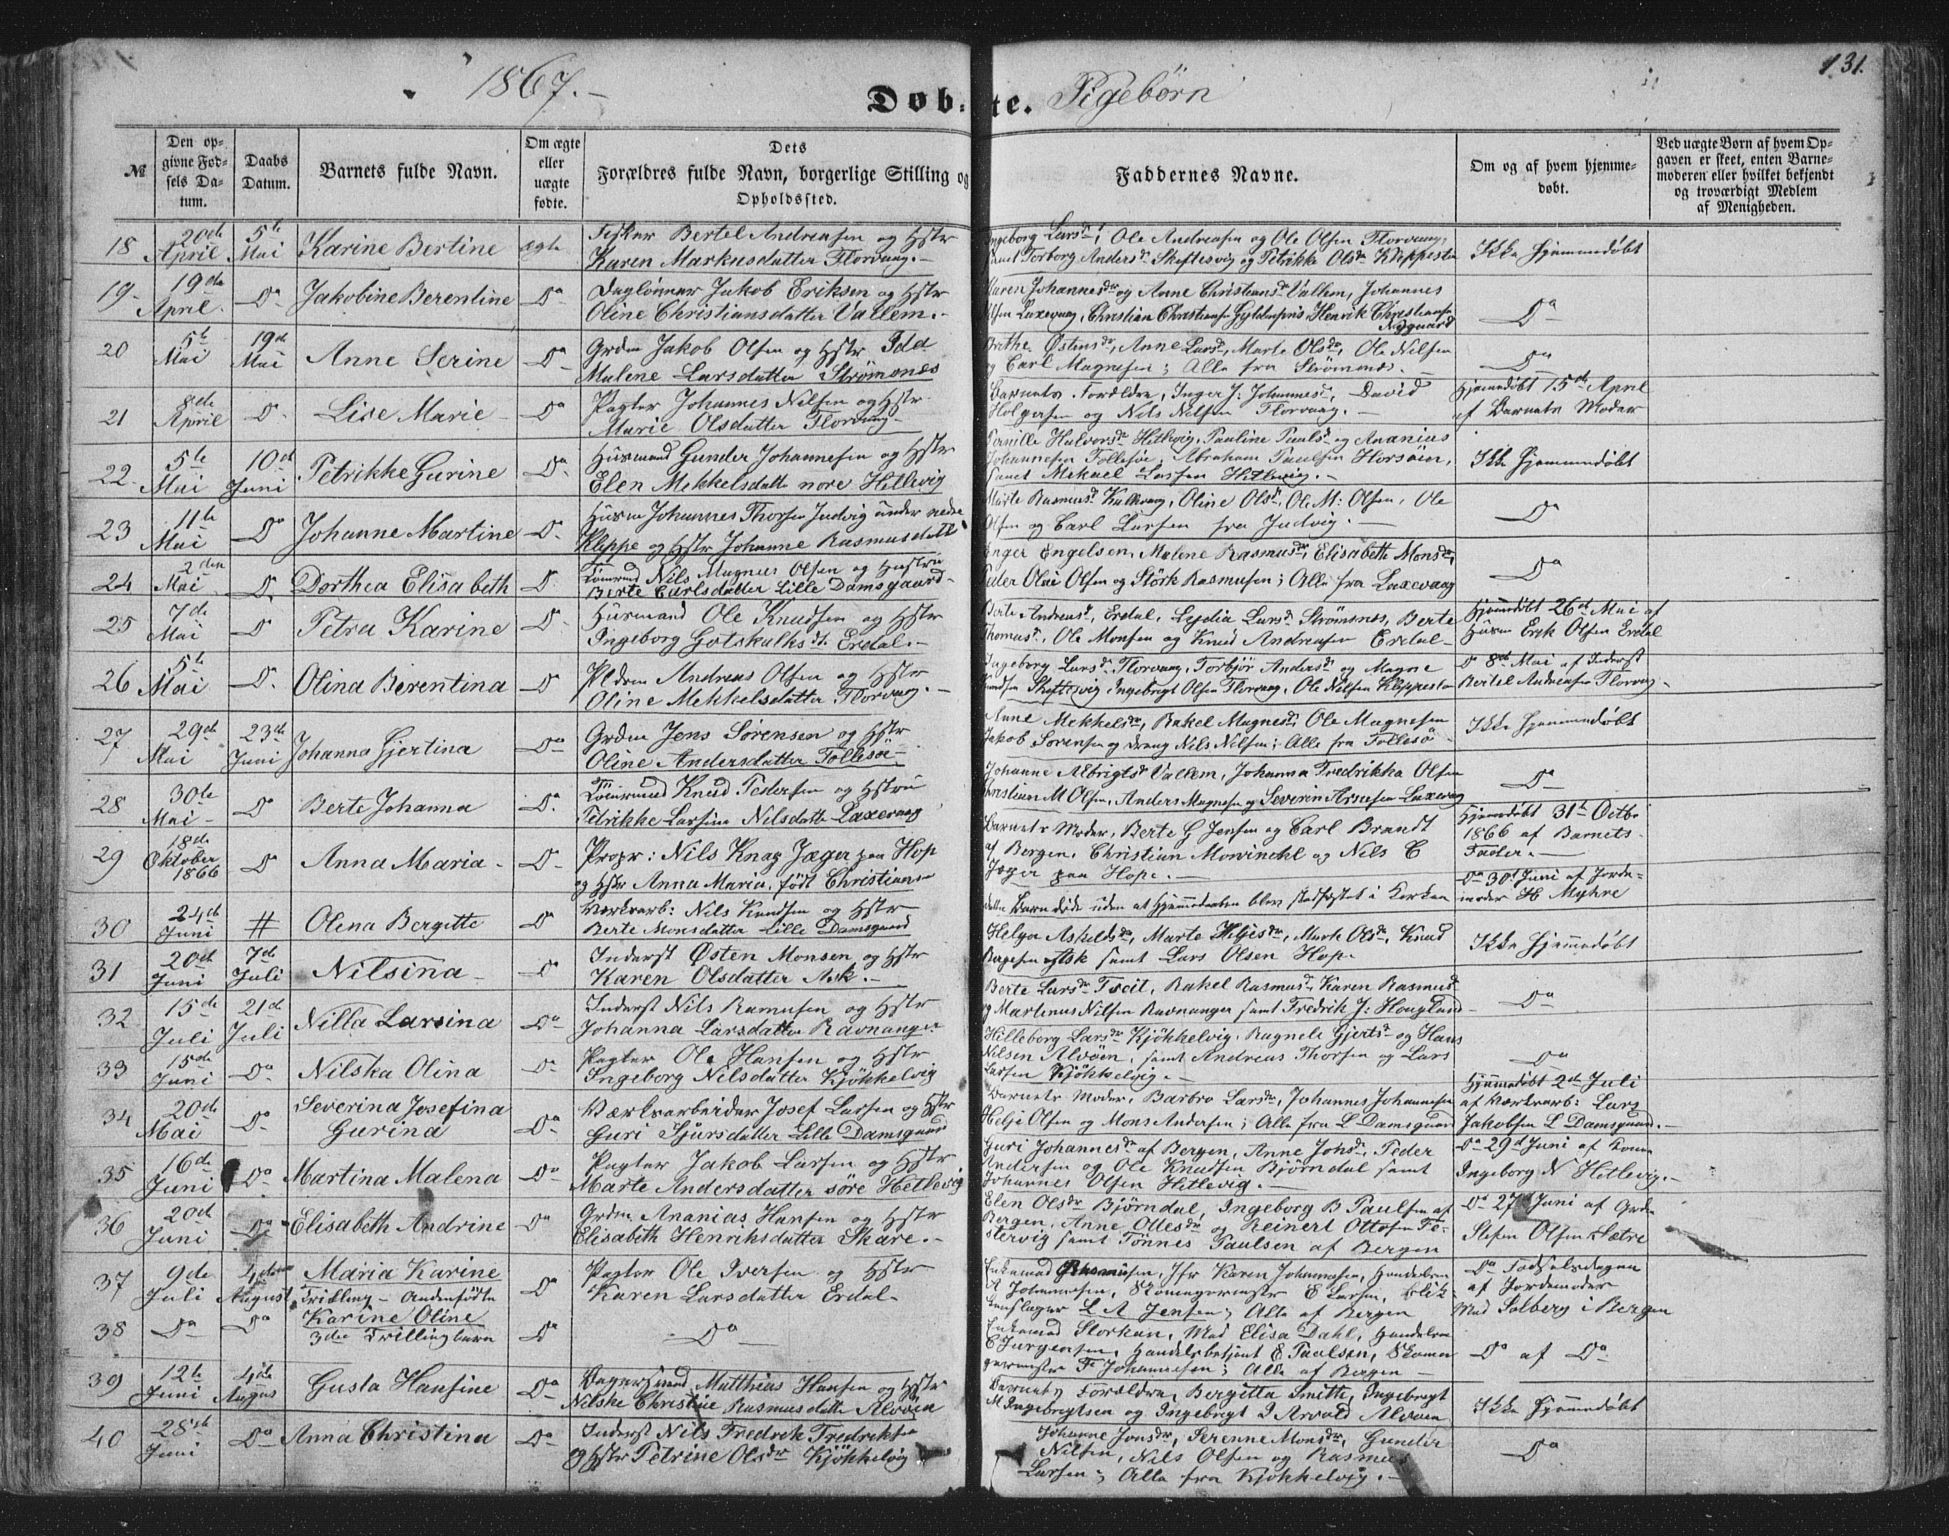 1867.
Døbte. Pigebørn
131.
№
Den opgivne Fødsels Datum.
Daabs Datum.
Barnets fulde Navn.
Om ægte eller uægte fødte.
Dets Forældres fulde Navn, borgerlige Stilling og Opholdssted.
Faddernes Navne.
Om og af hvem hjemmedøbt.
Ved uægte Børn af hvem Opgaven er skeet, enten Barnemoderen eller hvilket bekjendt og troværdigt Medlem af Menigheden.
18 20de April 5te Mai Karine Bertine ægte Fisker Bertel Andreasen og Hstr
Karen Markusdatter Florvaag.
Ingeborg Larsdr, Ole Andreasen og Ole Olsen Florvaag,
samt Torborg Andersdr Skeftesvig og Petrikke Olsdr Kleppestø
Ikke Hjemmedøbt
19 19de April Do Jakobine Berentine Do Daglønner Jakob Eriksen og Hstr
Oline Christiansdatter Vallem.
Maren Johannesdr og Anne Christiansdr Vallem, Johannes
Olsen Laxevaag, Christian Christiansen Gyldenpris, Henrik Christiansen
Nygaard
Do
20 5te Mai 19de Mai Anne Serine Do Grdm Jakob Olsen og Hstr Ida
Malene Larsdatter Strømsnes
Brithe Østensdr, Anne Larsdr, Marte Olsdr, Ole Nilsen
og Carl Magnesen; Alle fra Strømsnes.
Do
21 8de April Do Lise Marie Do Pagter Johannes Nilsen og Hstr
Marie Olsdatter Florvaag
Barnets Forældre, Inger J. Johannesdr, David
Holgersen og Nils Nilsen Florvaag.
Hjemmedøbt 15de April
af Barnets Moder
22 5te Mai 10de Juni Petrikke Gurine Do Husmand Gunder Johannesen og Hstr
Elen Mekkelsdatter nore Hetlevig
Pernille Halvorsdr Hetlevig, Pauline Paulsdr og Ananias
Johannesen Follesøe, Abraham Paulsen Horsøen,
samt Mekael Larsen Hetlevig.
Ikke Hjemmedøbt
23 11te Mai Do Johanne Martine Do Husm Johannes Thorsen Judvig under nedre
Kleppe og Hstr Johanne Rasmusdatter
Marte Rasmusdr Kalkvaag, Oline Olsdr, Ole M. Olsen, Ole
Olsen og Carl Larsen fra Judvig.
Do
24 2den Mai Do Dorthea Elisabeth Do Nils Magnus Olsen og Hustru
Berte Carlsdatter Lille Damsgaard
Inger Engelsen, Malene Rasmusdr, Elisabeth Monsdr,
Peder Olai Olsen og Størk Rasmusen; Alle fra Laxevaag
Do
25 7de Mai Do Petra Karine Do Husmand Ole Knudsen og Hstr
Ingeborg Gotskalksdr Erdal.
Berte Andreasdr Erdal, Lydia Larsdr Strømsnes, Berte
Thomasdr, Ole Monsen og Knud Andreasen Erdal
Hjemmedøbt 26de Mai af
Husm Eryk Olsen Erdal
26 5te Mai Do Olina Berentina Do Pldsm Andreas Olsen og Hstr
Oline Mekkelsdatter Florvaag.
Ingeborg Larsdr Florvaag, Torbjør Andersdr og Magne
Knudsen Skeftesvig, Ingebrigt Olsen Florvaag, Ole Nilsen Kleppestø
Do 8de Mai af Inderst
Bertel Andreasen Florvaag
27 29de Mai 23de Juni Johanna Gjertina Do Grdm Jens Sørensen og Hstr
Oline Andersdatter Follesøe
Anne Mekkelsdr, Rakel Magnesdr, Ole Magnesen
Jakob Sørensen og Dreng Nils Nilsen; Alle fra Follesø
Ikke Hjemmedøbt
28 30te Mai Do Berte Johanna Do Knud Pedersen og Hstru
Petrikke Larsine Nilsdatter Laxevaag
Johanne Albrigtsdr Vallem, Johanna Fredrikka Olsen
Christian M Olsen, Anders Magnesen og Severin Arnesen Laxevaag
Do
29 18de Oktober 1866 Do Anna Maria Do Propr: Nils Knag Jæger paa Hop
og Hstr Anna Maria, født Christiansen
Barnets Moder, Berte G Jensen og Carl Brandt
af Bergen, Christian Mowinckel og Nils C
Jæger paa Hope.
Hjemmedøbt 31te Octbr
1866 af Barnets
Fader.
30 24de Juni # Olena Bergitte Do Værkarb: Nils Knudsen og Hstr
Berte Monsdatter Lille Damsgaard
dette Barn døde uden at Hjemmedaaben blev stadfæstet i Kirken
Do 30te Juni af Jordemoder H Myhre
31 20de Juni 7de Juli Nilsina Do Inderst Østen Monsen og Hstr
Karen Olsdatter Ask.
Helga Askildsdr, Marte Heljesdr, Mark Olsdr, Knud
Børgesen Ask samt Lars Olsen Hop.
Ikke Hjemmedøbt
32 15de Juli 21de Juli Nilla Larsina Do Inderst Nils Ramusen og Hstr
Johanna Larsdatter Ravnanger
Berte Larsdr Tveit, Rakel Rasmusdr, Karen Rasmusdr
og Martinus Nilsen Ravnanger samt Fredrik J. Hougland
Do
33 15de Juni Do Nilska Olina Do Pagter Ole Hansen og Hstr
Ingeborg Nilsdatter Kjøkkelvig
Hilleborg Larsdr Kjøkkelvig, Ragnele Gjertsdr og Hans
Nilsen Alvøen, samt Andreas Thorsen og Lars
Larsen Kjøkkelvig.
Do
34 20de Mai Do Severina Josefina
Gurina Do Værksarbeider Josef Larsen og Hstr
Guri Sjursdatter Lille Damsgaard
Barnets Moder, Barbro Larsdr, Johannes Johannesen
Helje Olsen og Mons Andersen; Alle fra L Damsgaard
Hjemmedøbt 2de Juli
af Værksarb: Lars
Jakobsen L Damsgaard.
35 16de Juni Do Martina Malena Do Pagter Jakob Larsen og Hstr
Marte Andersdatter søre Hetlevig
Guri Johannesdr af Bergen, Anne Johsdr, Peder
Andersen og Ole Knudsen Bjørndal samt
Johannes Olsen Hetlevig.
Do 29de Juni af Kone
Ingeborg N Hetlevig.
36 20de Juni Do Elisabeth Andrine Do Grdm Ananias Hansen og Hstr
Elisabeth Henriksdatter Skare.
Elen Olsdr Bjørndal, Ingeborg B Paulsen af
Bergen, Anne Ollesdr og Reinert Ottosen Te-
stervig samt Tønnes Paulsen af Bergen
Do 27de Juni af Grdm
Stefen Olsen Sætre
37 9de Juli 4de August Maria Karine
Trilling - Andenfødte Do Pagter Ole Iversen og Hstr
Karen Larsdatter Erdal
Enkemad Rasmusen, Jfr Karen Johannesen, Handelsm
A Johannesen, E Larsen, Blik-
kenslager L A Jensen; Alle af Bergen
Do Fødselsdagen
af Jordemoder
Mad Solberg i Bergen
38 Do Do Karine Oline
3die Trillingbarn Do Do
Enkemad Storkan, Mad Elisa Dahl, Handelsm
C Jurgensen, Handelsbetjent E Paulsen, Skoma-
germester Fr Johannesen; Alle af Bergen
Do af Do
39 12te Juni 4de August Gusta Hansine Do Matthias Hansen og Hstr
Nilske Christine Rasmusdatter Alvøen
Barnets Forældre, Bergitta Smitt, Ingebregt
M Ingebregtsen og Ingebregt I Arvold Alvøen
Ikke Hjemmedøbt
40 28de Juni Do Anna Christina Do Inderst Nils Fredrik Fredriksen
og Hstr Petrine Olsdr Kjøkkelvig
Johanne Jonsdr, Serenne Monsdr, Gunder
Nilsen, Nils Olsen og Rasmus
Larsen; Alle fra Kjøkkelvig.
Do